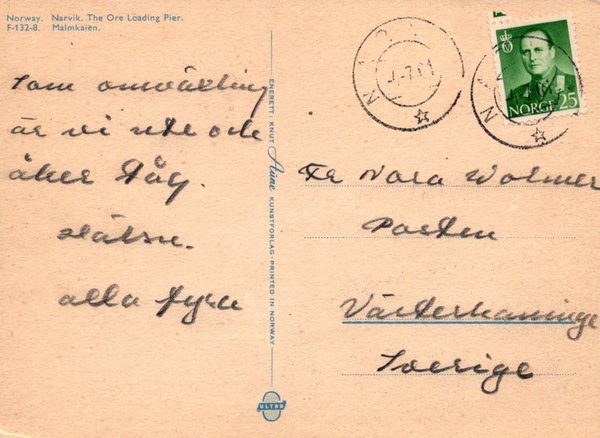 Norway. Narvik. The Ore Loading Pier.
F-132-8. Malmkaien.
Som omväxling
är vi ute och
åker tåg.
Hälsn.
alla fyra
ENERETT: KNUT Aune KUNSTFORLAG · PRINTED IN NORWAY
ULTRA
NORGE 25
Fr Nora Wolmer
Posten
Västerhaninge
Sverige